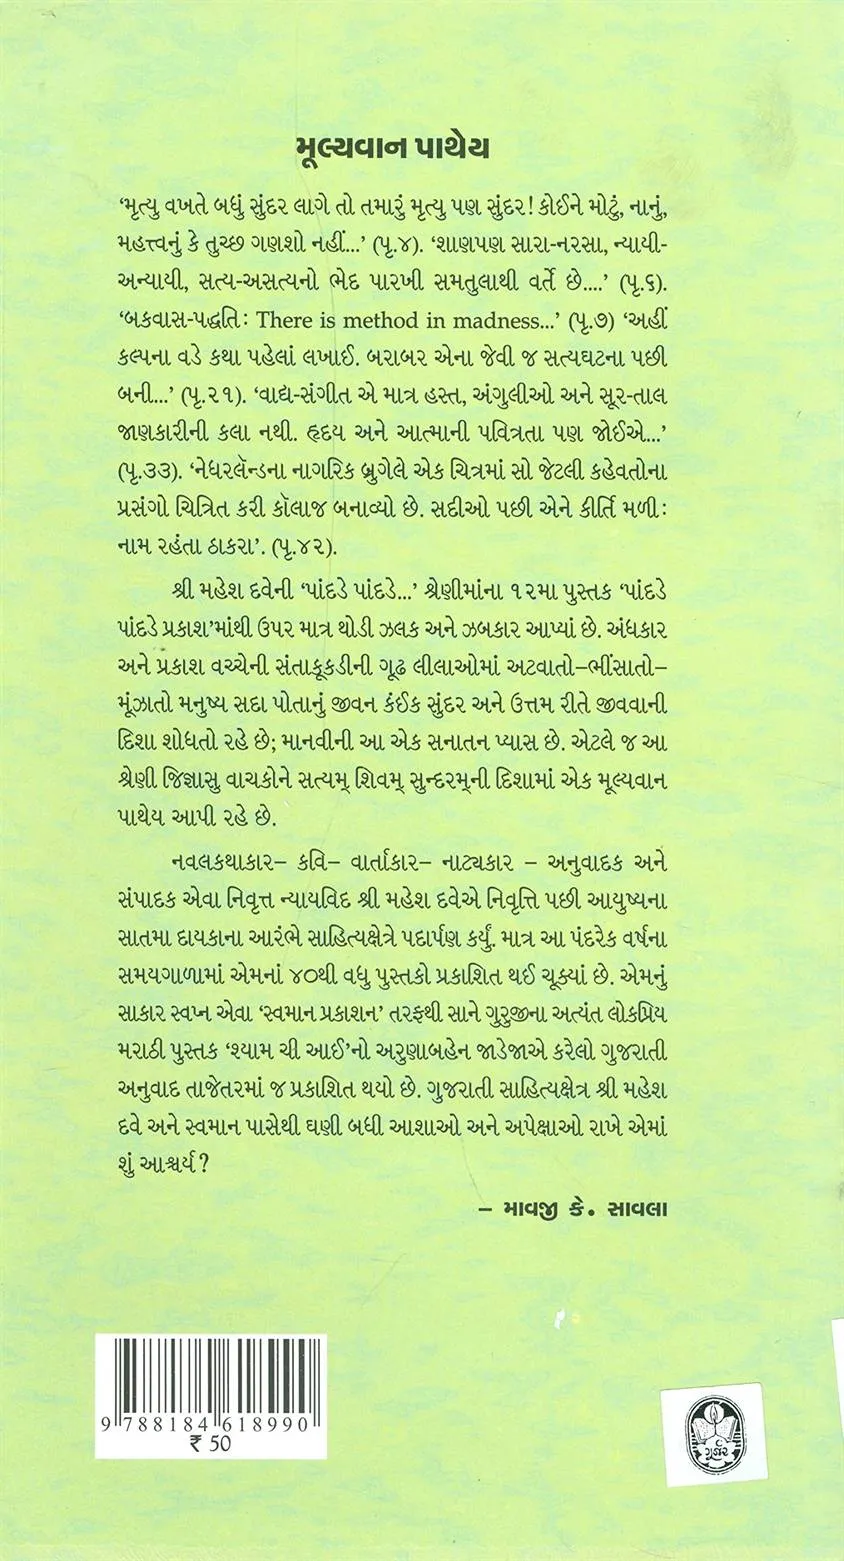 મૂલ્યવાન પાથેય
‘મૃત્યુ વખતે બધું સુંદર લાગે તો તમારું મૃત્યુ પણ સુંદર! કોઈને મોટું, નાનું,
મહત્ત્વનું કે તુચ્છ ગણશો નહીં...’ (પૃ.૪). ‘શાણપણ સારા-નરસા, ન્યાયી-
અન્યાયી, સત્ય-અસત્યનો ભેદ પારખી સમતુલાથી વર્તે છે....’ (પૃ.૬).
‘બકવાસ-પદ્ધતિ: There is method in madness...’ (પૃ.૭) ‘અહીં
કલ્પના વડે કથા પહેલાં લખાઈ. બરાબર એના જેવી જ સત્યઘટના પછી
બની...’ (પૃ.૨૧). ‘વાદ્ય-સંગીત એ માત્ર હસ્ત, અંગુલીઓ અને સૂર-તાલ
જાણકારીની કલા નથી. હૃદય અને આત્માની પવિત્રતા પણ જોઈએ...’
(પૃ.૩૩). ‘નેધરલૅન્ડના નાગરિક બ્રુગેલે એક ચિત્રમાં સો જેટલી કહેવતોના
પ્રસંગો ચિત્રિત કરી કૉલાજ બનાવ્યો છે. સદીઓ પછી એને કીર્તિ મળી :
નામ રહંતા ઠાકરા’. (પૃ.૪૨).
શ્રી મહેશ દવેની ‘પાંદડે પાંદડે...’ શ્રેણીમાંના ૧૨મા પુસ્તક ‘પાંદડે
પાંદડે પ્રકાશ’માંથી ઉપર માત્ર થોડી ઝલક અને ઝબકાર આપ્યાં છે. અંધકાર
અને પ્રકાશ વચ્ચેની સંતાકૂકડીની ગૂઢ લીલાઓમાં અટવાતો–ભીંસાતો–
મૂંઝાતો મનુષ્ય સદા પોતાનું જીવન કંઈક સુંદર અને ઉત્તમ રીતે જીવવાની
દિશા શોધતો રહે છે; માનવીની આ એક સનાતન પ્યાસ છે. એટલે જ આ
શ્રેણી જિજ્ઞાસુ વાચકોને સત્યમ્ શિવમ્ સુન્દરમ્‌ની દિશામાં એક મૂલ્યવાન
પાથેય આપી રહે છે.
નવલકથાકાર– કવિ– વાર્તાકાર– નાટ્યકાર – અનુવાદક અને
સંપાદક એવા નિવૃત્ત ન્યાયવિદ શ્રી મહેશ દવેએ નિવૃત્તિ પછી આયુષ્યના
સાતમા દાયકાના આરંભે સાહિત્યક્ષેત્રે પદાર્પણ કર્યું. માત્ર આ પંદરેક વર્ષના
સમયગાળામાં એમનાં ૪૦થી વધુ પુસ્તકો પ્રકાશિત થઈ ચૂક્યાં છે. એમનું
સાકાર સ્વપ્ન એવા ‘સ્વમાન પ્રકાશન’ તરફથી સાને ગુરુજીના અત્યંત લોકપ્રિય
મરાઠી પુસ્તક ‘શ્યામ ચી આઈ’નો અરુણાબહેન જાડેજાએ કરેલો ગુજરાતી
અનુવાદ તાજેતરમાં જ પ્રકાશિત થયો છે. ગુજરાતી સાહિત્યક્ષેત્ર શ્રી મહેશ
દવે અને સ્વમાન પાસેથી ઘણી બધી આશાઓ અને અપેક્ષાઓ રાખે એમાં
શું આશ્ચર્ય ?
– માવજી કે. સાવલા
9 788184 618990
₹ 50
ગૂર્જર